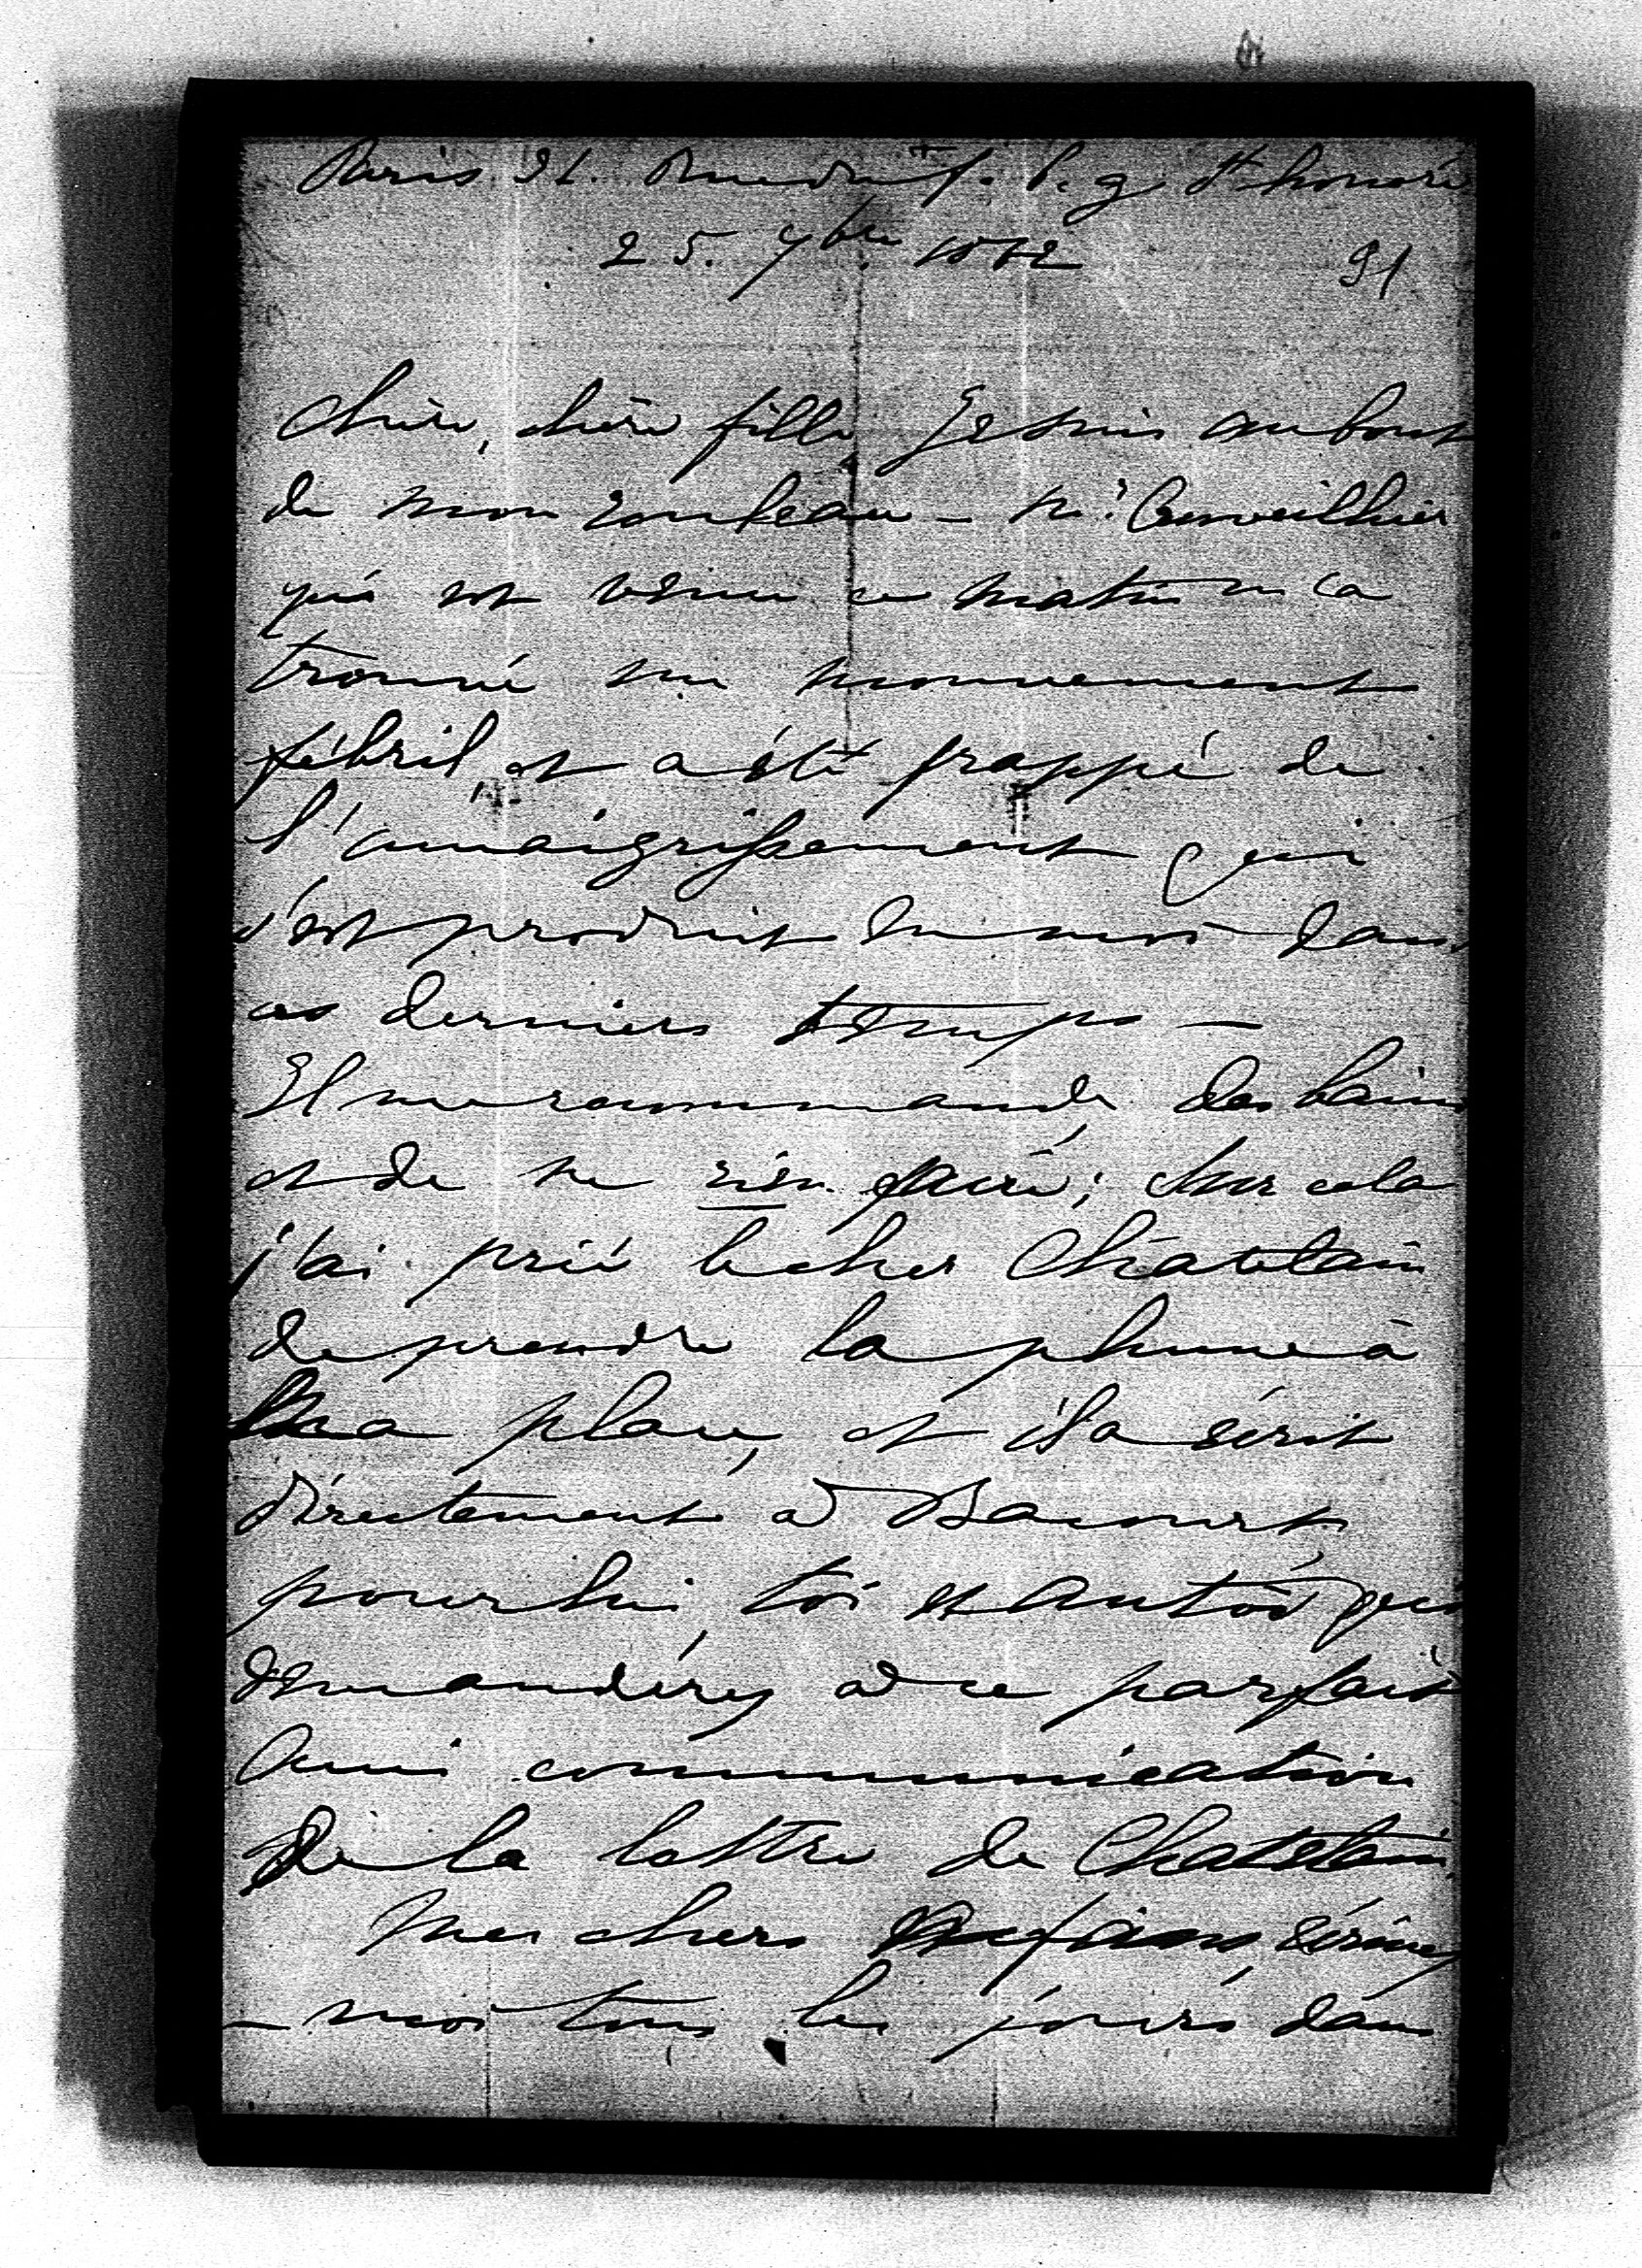 Paris 91. Rue du f. b. g St honoré
25. 9bre 1862
91
Chère, chère fille, Je suis au bout
de mon rouleau – Mr Cruveilhier
qui est venu ce matin m'a
trouvé un mouvement
fébril et a été frappé de
l'amaigrissement qui
s'est produit en moi dans
ces derniers temps –
Il me recommande des bains
et de ne rien faire; Sur cela
j'ai prié le cher Chatelain
de prendre la plume à
Ma place, et il a écrit
directement à Bacourt
pour lui, toi et
demanderez à ce parfait
Ami communication
De la lettre de Chatelain.
Mes chers enfans, écrivez
– moi tous les jours dans